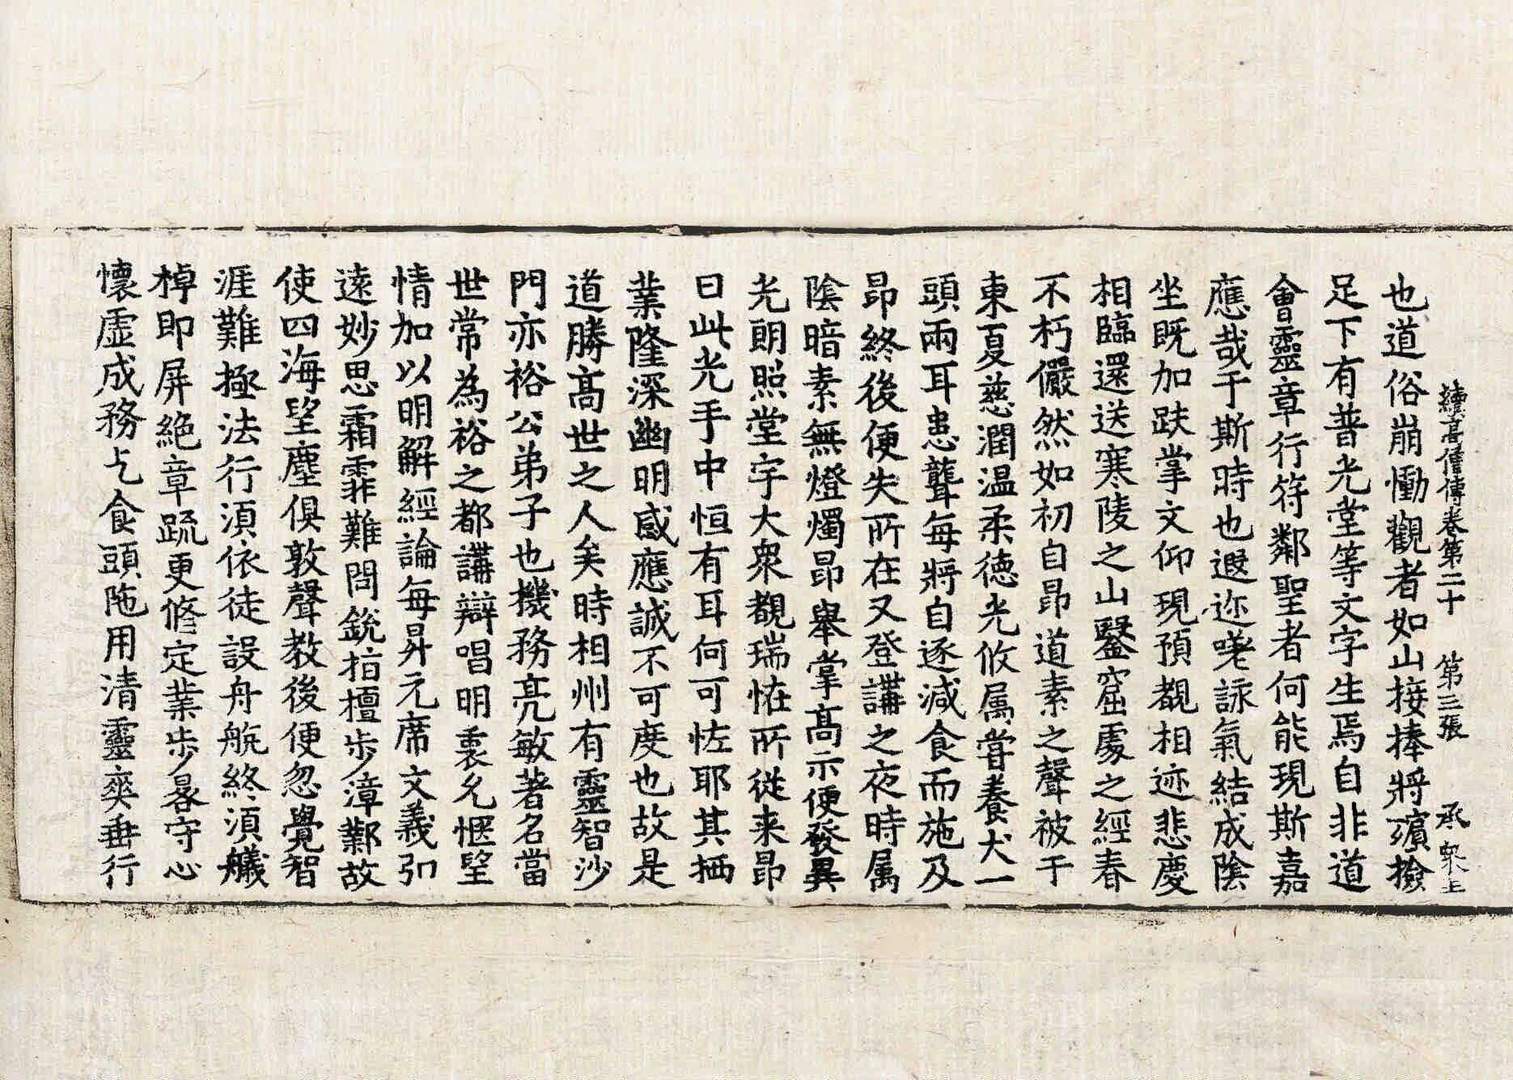 續高僧傳卷第二十　第三張　承
也道俗崩慟觀者如山接捧將殯撿
足下有普光堂等文字生焉自非道
會靈章行符鄰聖者何能現斯嘉
應哉于斯時也遐迩嗟詠氣結成陰
坐既加趺掌文仰現預覩相迹悲慶
相臨還送寒陵之山鑿窟處之經春
不朽儼然如初自昂道素之聲被于
東夏慈潤温柔德光攸属甞養犬一
頭兩耳患聾每將自逐減食而施及
昂終後便失所在又登講之夜時属
陰暗素無燈燭昂舉掌高示便發異
光朗照堂宇大衆覩瑞恠所從来昂
曰此光手中恒有耳何可恠耶其栖
業隆深幽明感應誠不可度也故是
道勝高世之人矣時相州有靈智沙
門亦裕公弟子也機務亮敏著名當
世常為裕之都講辯唱明衷允愜望
情加以明解經論每昇元席文義弘
遠妙思霜霏難問銳指擅步漳鄴故
使四海望塵俱敦聲教後便忽覺智
涯難極法行湏依徒設舟航終湏艤
棹即屏絶章疏更修定業步畧守心
懷虛成務乞食頭陁用清靈爽垂行